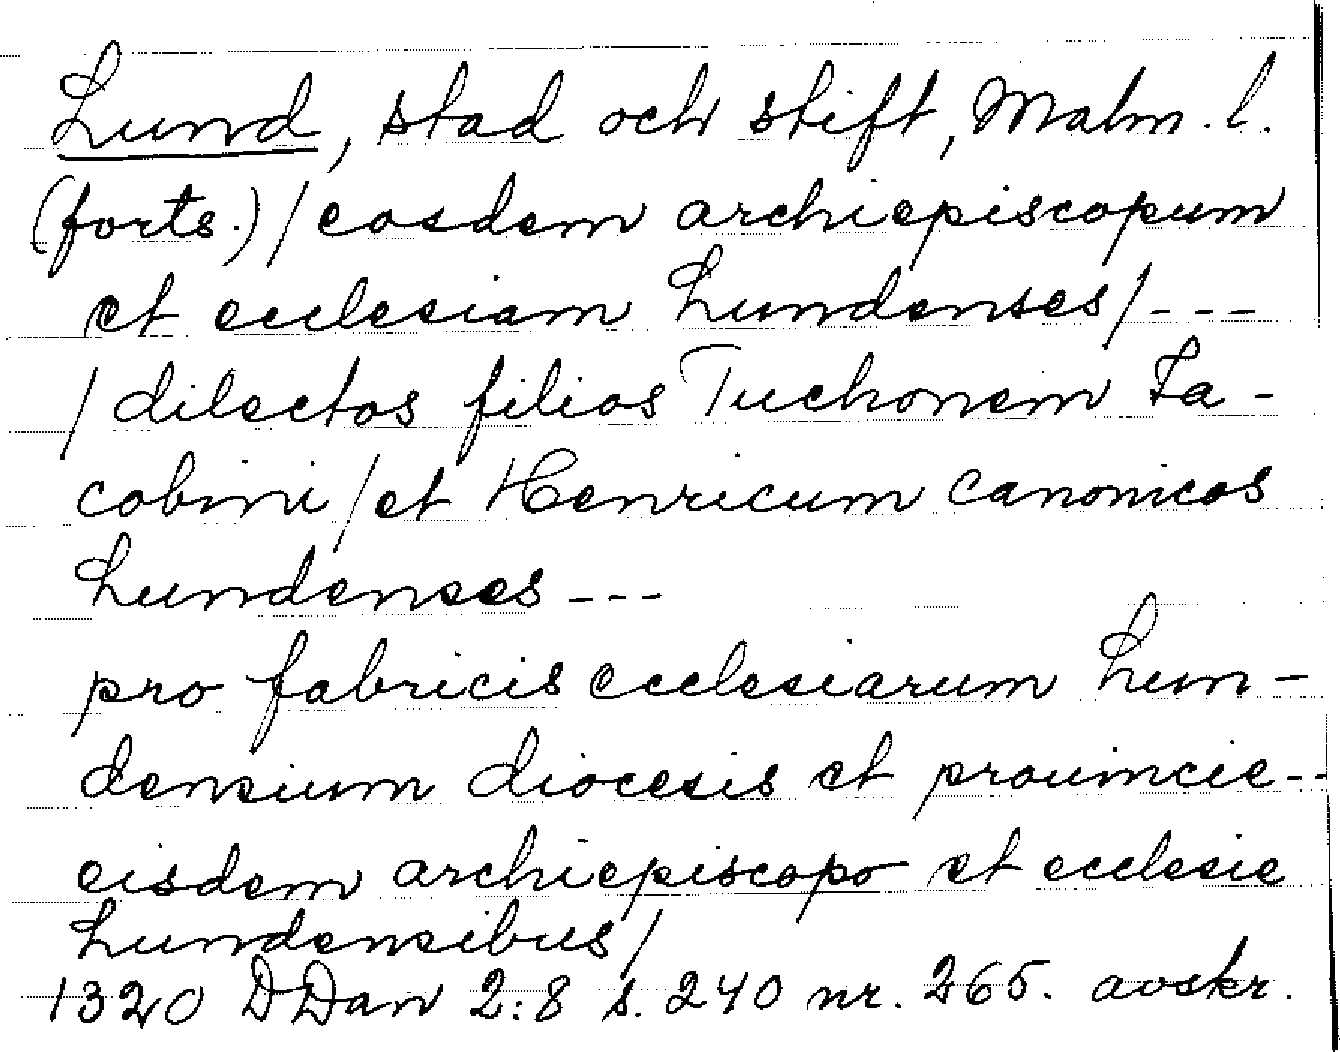 Lund, stad och stift, Malm. l.
(forts.) / eosdem archiepiscopum
et ecclesiam Lundenses / ---
/ dilectos filios Tuchonem Ja-
cobini / et Henricum canonicos
Lundenses ---
pro fabricis ecclesiarum Lun-
densium diocesis et prouincie--
eisdem archiepiscopo et ecclesie
Lundensibus /
1320 DDan 2:8 s. 240 nr. 265. avskr.